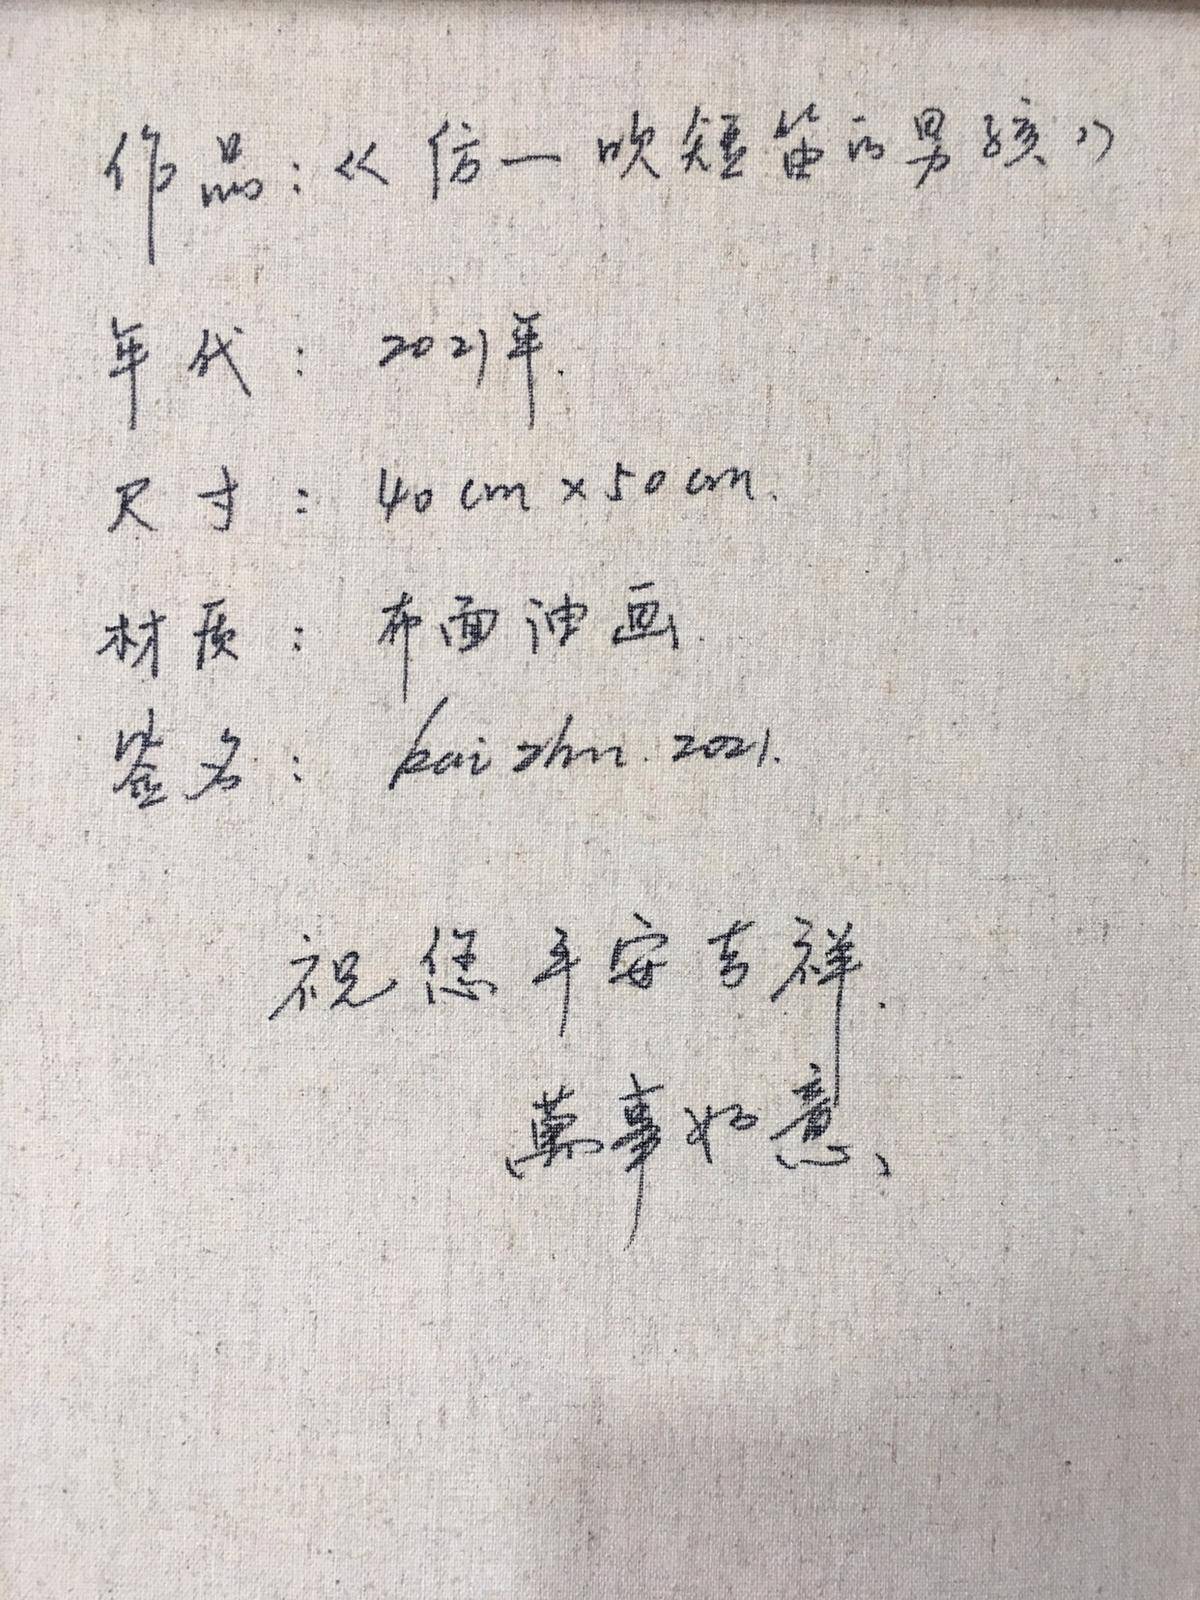 作品:《仿一吹短笛的男孩》
年代: 2021年.
尺寸: 40cm×50cm.
材质: 布面油画.
签名: kai zhu. 2021.
祝您平安吉祥.
萬事如意、